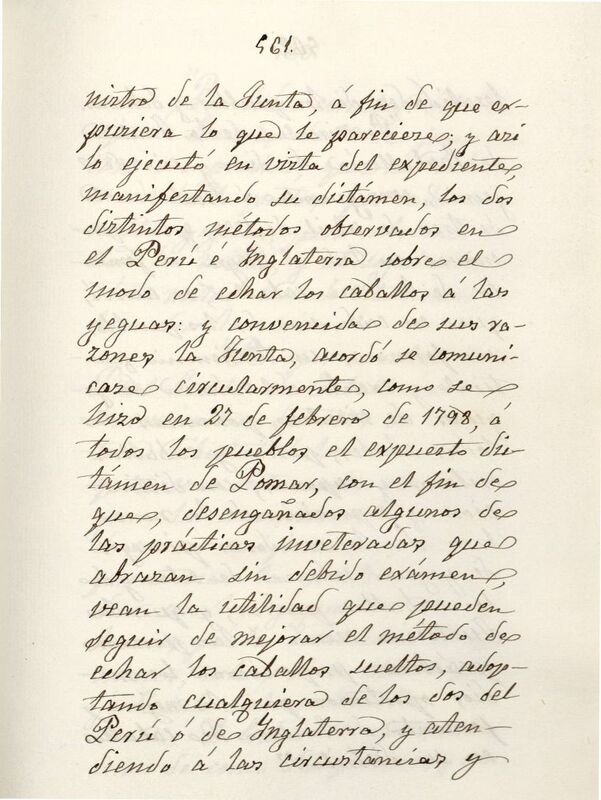 561.
nistro de la Junta, á fin de que ex-
pusiera lo que le pareciese; y asi
lo ejecutó en vista del expediente,
manifestando su dictámen, los dos
distintos métodos observados en
el Perú é Inglaterra sobre el
modo de echar los caballos á las
yeguas: y convencida de sus ra-
zones la Junta, acordó se comuni-
case circularmente, como se
hizo en 27 de febrero de 1798, á
todos los pueblos el expuesto dic-
támen de Pomar, con el fin de
que, desengañados algunos de
las prácticas inveteradas que
abrazan sin debido exámen,
vean la utilidad que pueden
seguir de mejorar el método de
echar los caballos sueltos, adop-
tando cualquiera de los dos del
Perú ó de Inglaterra, y aten-
diendo á las circustancias y